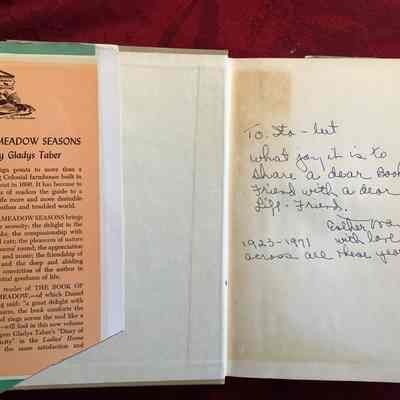 MEADOW SEASONS
y Gladys Taber
sign points to more than a
Colonial farmhouse built in
cut in 1690. It has become to
of readers the guide to a
life more and more desirable
restless and troubled world.
LMEADOW SEASONS brings
serenity; the delight in the
the companionship with
cats; the pleasures of nature
round; the appreciation
and music; the friendship of
and the deep and abiding
conviction of the author in
goodness of life.
reader of THE BOOK OF
MEADOW,—of which Daniel
said: "a great delight with
the book comforts the
and rings across the soul like a
—will find in this new volume
upon Gladys Taber's "Diary of
in the Ladies' Home
the same satisfaction and
To: Sta-leet
What joy it is to
share a dear Book
Friend with a dear
Life-Friend.
Esther
1923-1971 with love
across all these years